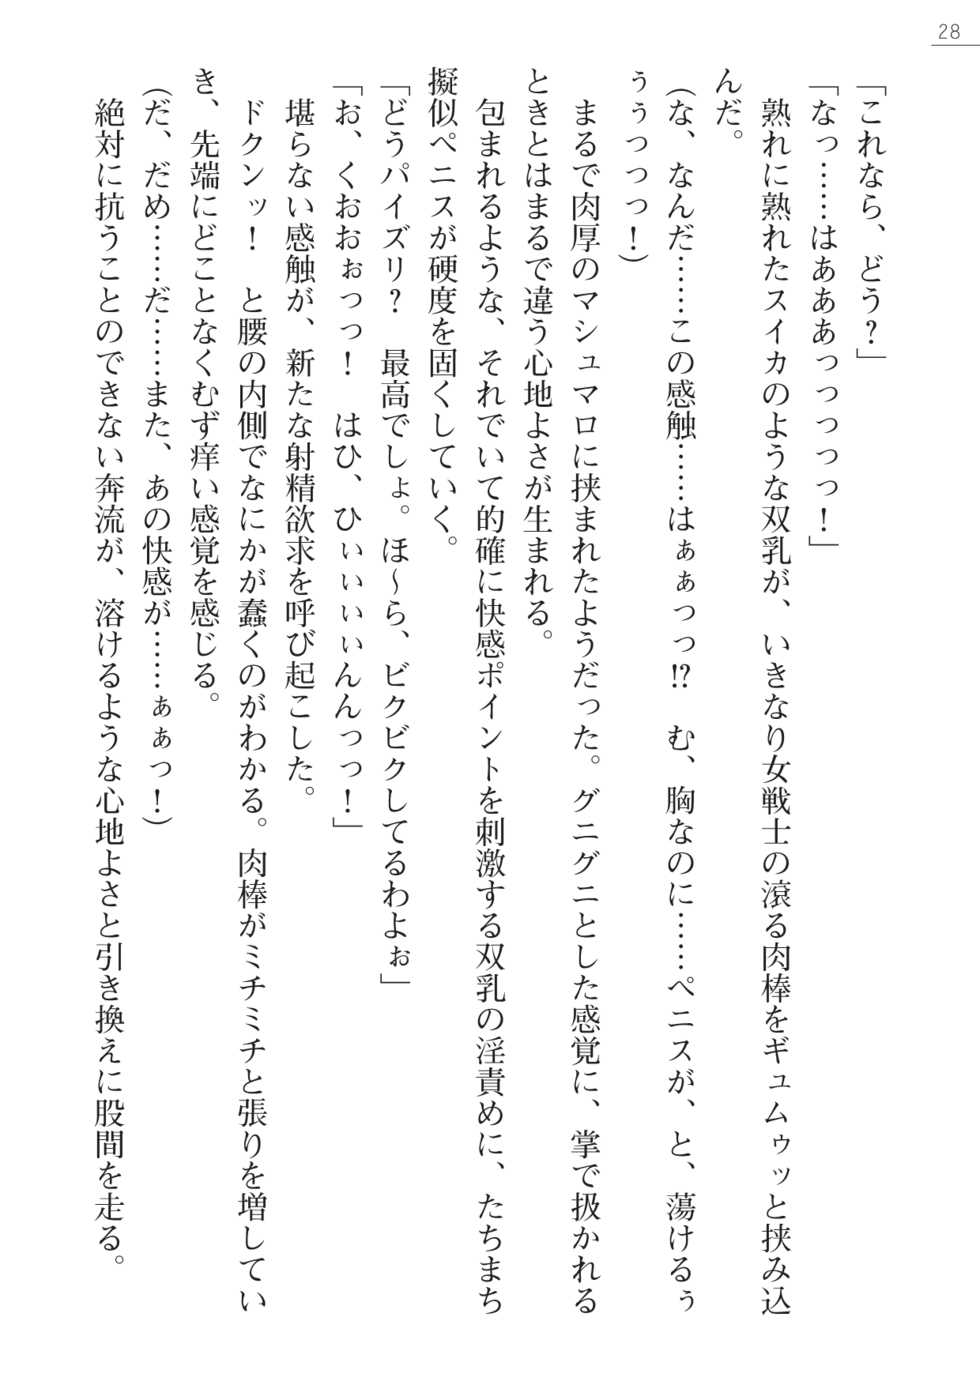 28
「これなら、どう？」
「なっ……はあああっっっっっ！」
　熟れに熟れたスイカのような双乳が、いきなり女戦士の滾る肉棒をギュムゥッと挟み込
んだ。
(な、なんだ……この感触……はぁぁっっ!?　む、胸なのに……ペニスが、と、蕩けるぅ
ぅぅっっっ！)
　まるで肉厚のマシュマロに挟まれたようだった。グニグニとした感覚に、掌で扱かれる
ときとはまるで違う心地よさが生まれる。
　包まれるような、それでいて的確に快感ポイントを刺激する双乳の淫責めに、たちまち
擬似ペニスが硬度を固くしていく。
「どうパイズリ？　最高でしょ。ほ～ら、ビクビクしてるわよぉ」
「お、くおおぉっっ！　はひ、ひぃぃぃぃんんっっ！」
　堪らない感触が、新たな射精欲求を呼び起こした。
　ドクンッ！　と腰の内側でなにかが蠢くのがわかる。肉棒がミチミチと張りを増してい
き、先端にどことなくむず痒い感覚を感じる。
(だ、だめ……だ……また、あの快感が……ぁぁっ！)
　絶対に抗うことのできない奔流が、溶けるような心地よさと引き換えに股間を走る。